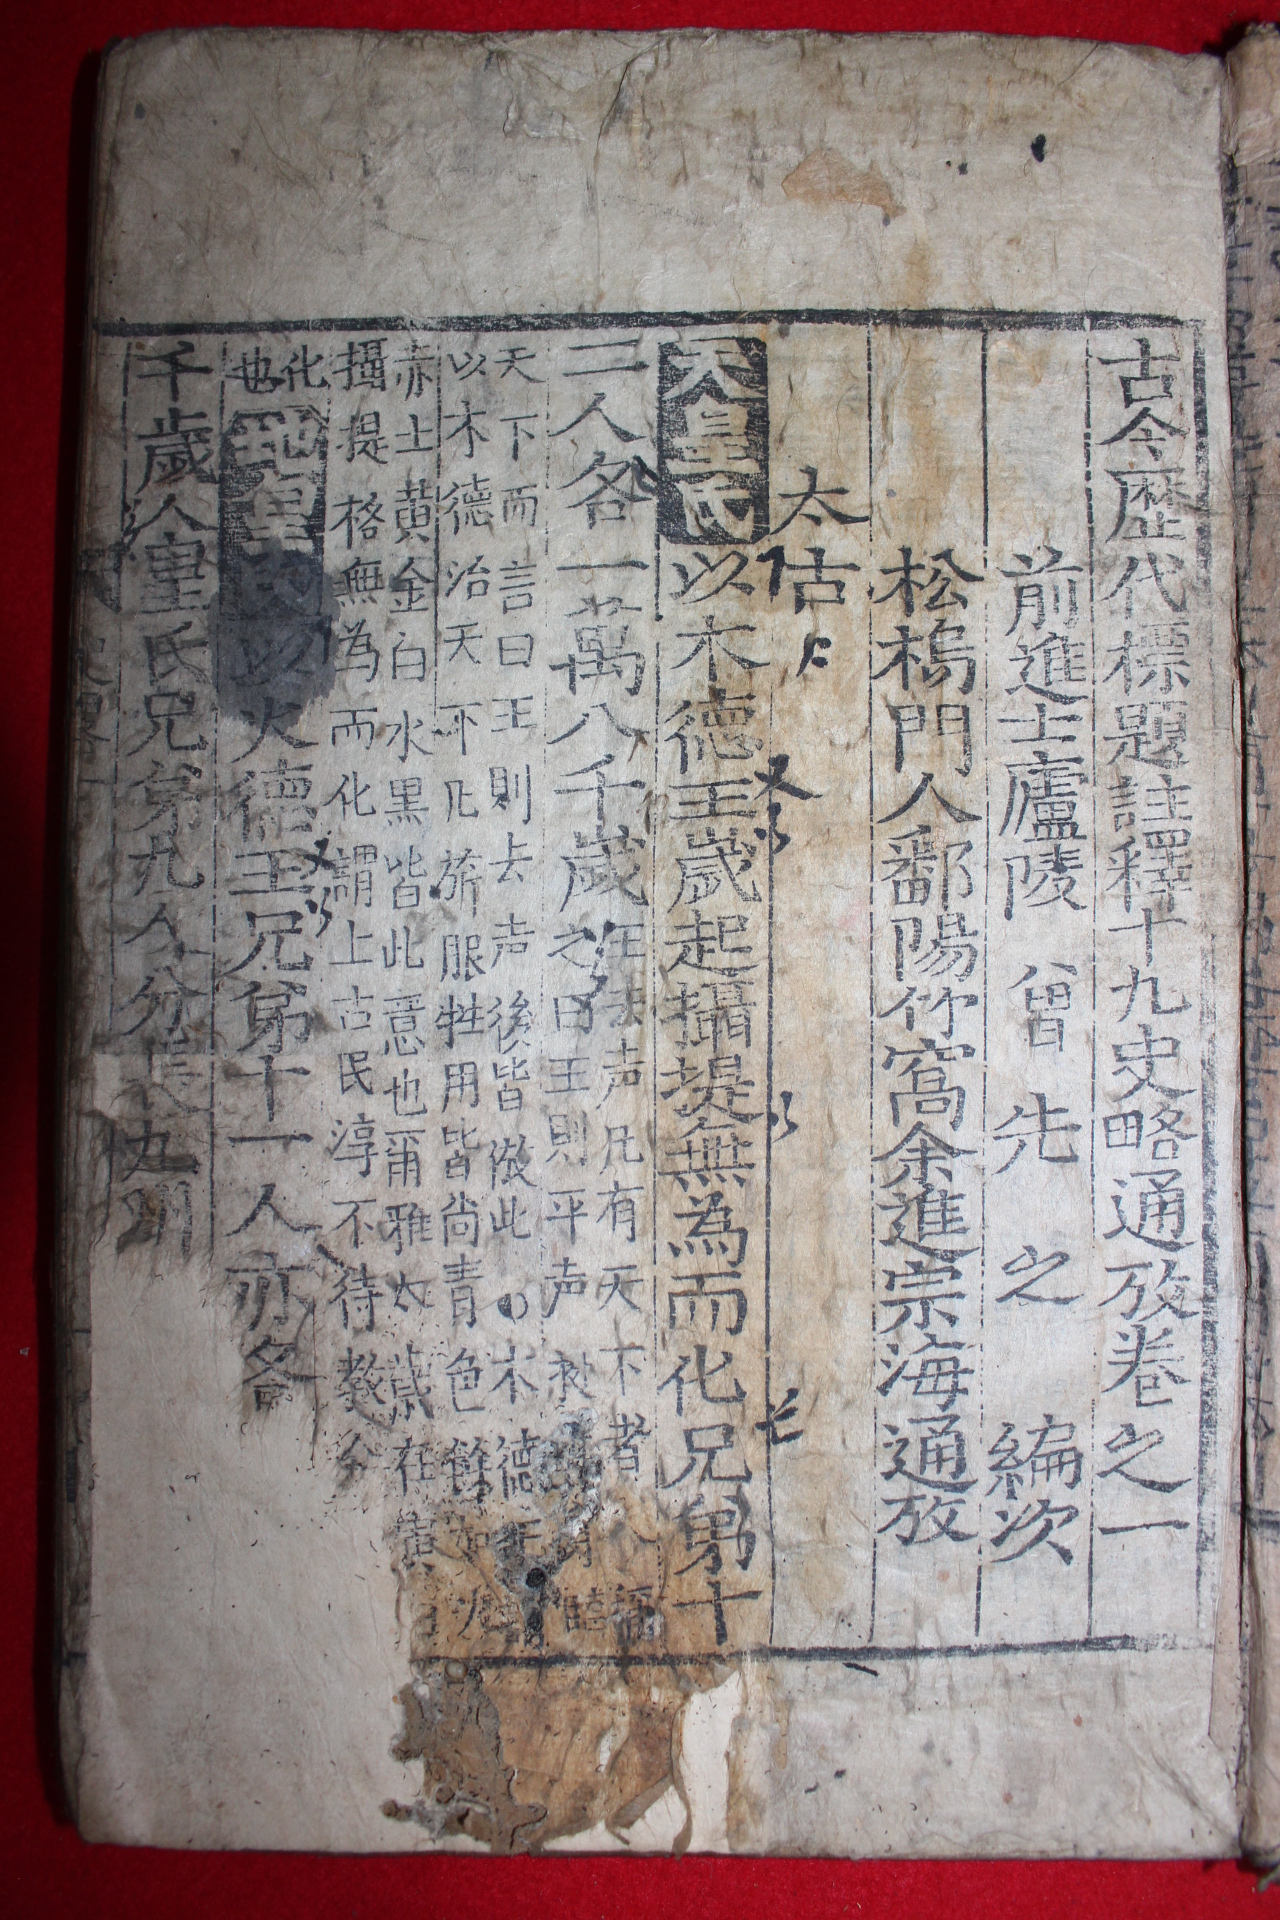 古今歷代標題註釋十九史略通攷卷之一
前進士廬陵 曾 先 之 編次
松塢門人鄱陽竹窩余進宗海通攷
太古
天皇氏以木德王歲起攝提無為而化兄弟十
二人各一萬八千歲
王去声凡有天下者人稱
之曰王則平声
天下而言曰王則去声後皆倣此○木德王
以木德治天下凡旂服牲用皆尚青色餘如火
赤土黄金白水黒皆此意也爾雅太歲在寅
攝提格無為而化謂上古民淳不待教令
化
也
地皇氏以火德王兄弟十一人亦各
千歲人皇氏兄弟九人分長九州